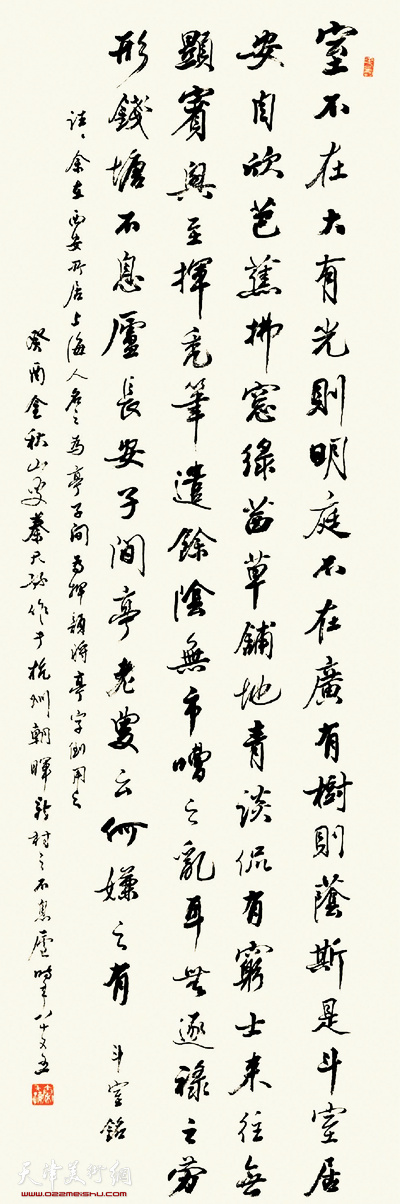 室不在大有光則明庭不在廣有樹則蔭斯是斗室居
安自欣芭蕉拂窓綠茵草鋪地青談侃有窮士來往無
顯賓興至揮毫筆遣餘陰無市嘈之亂耳無逐祿之勞
形錢塘不息廬長安子間亭老叟云何嫌之有 斗室銘
注余在西安所居上海人名之為亭子間為押韻將亭字倒用之
癸酉金秋山叟秦天作于杭州朝暉新村之不息廬時年八十又五
天津美術網
www.022meishu.com